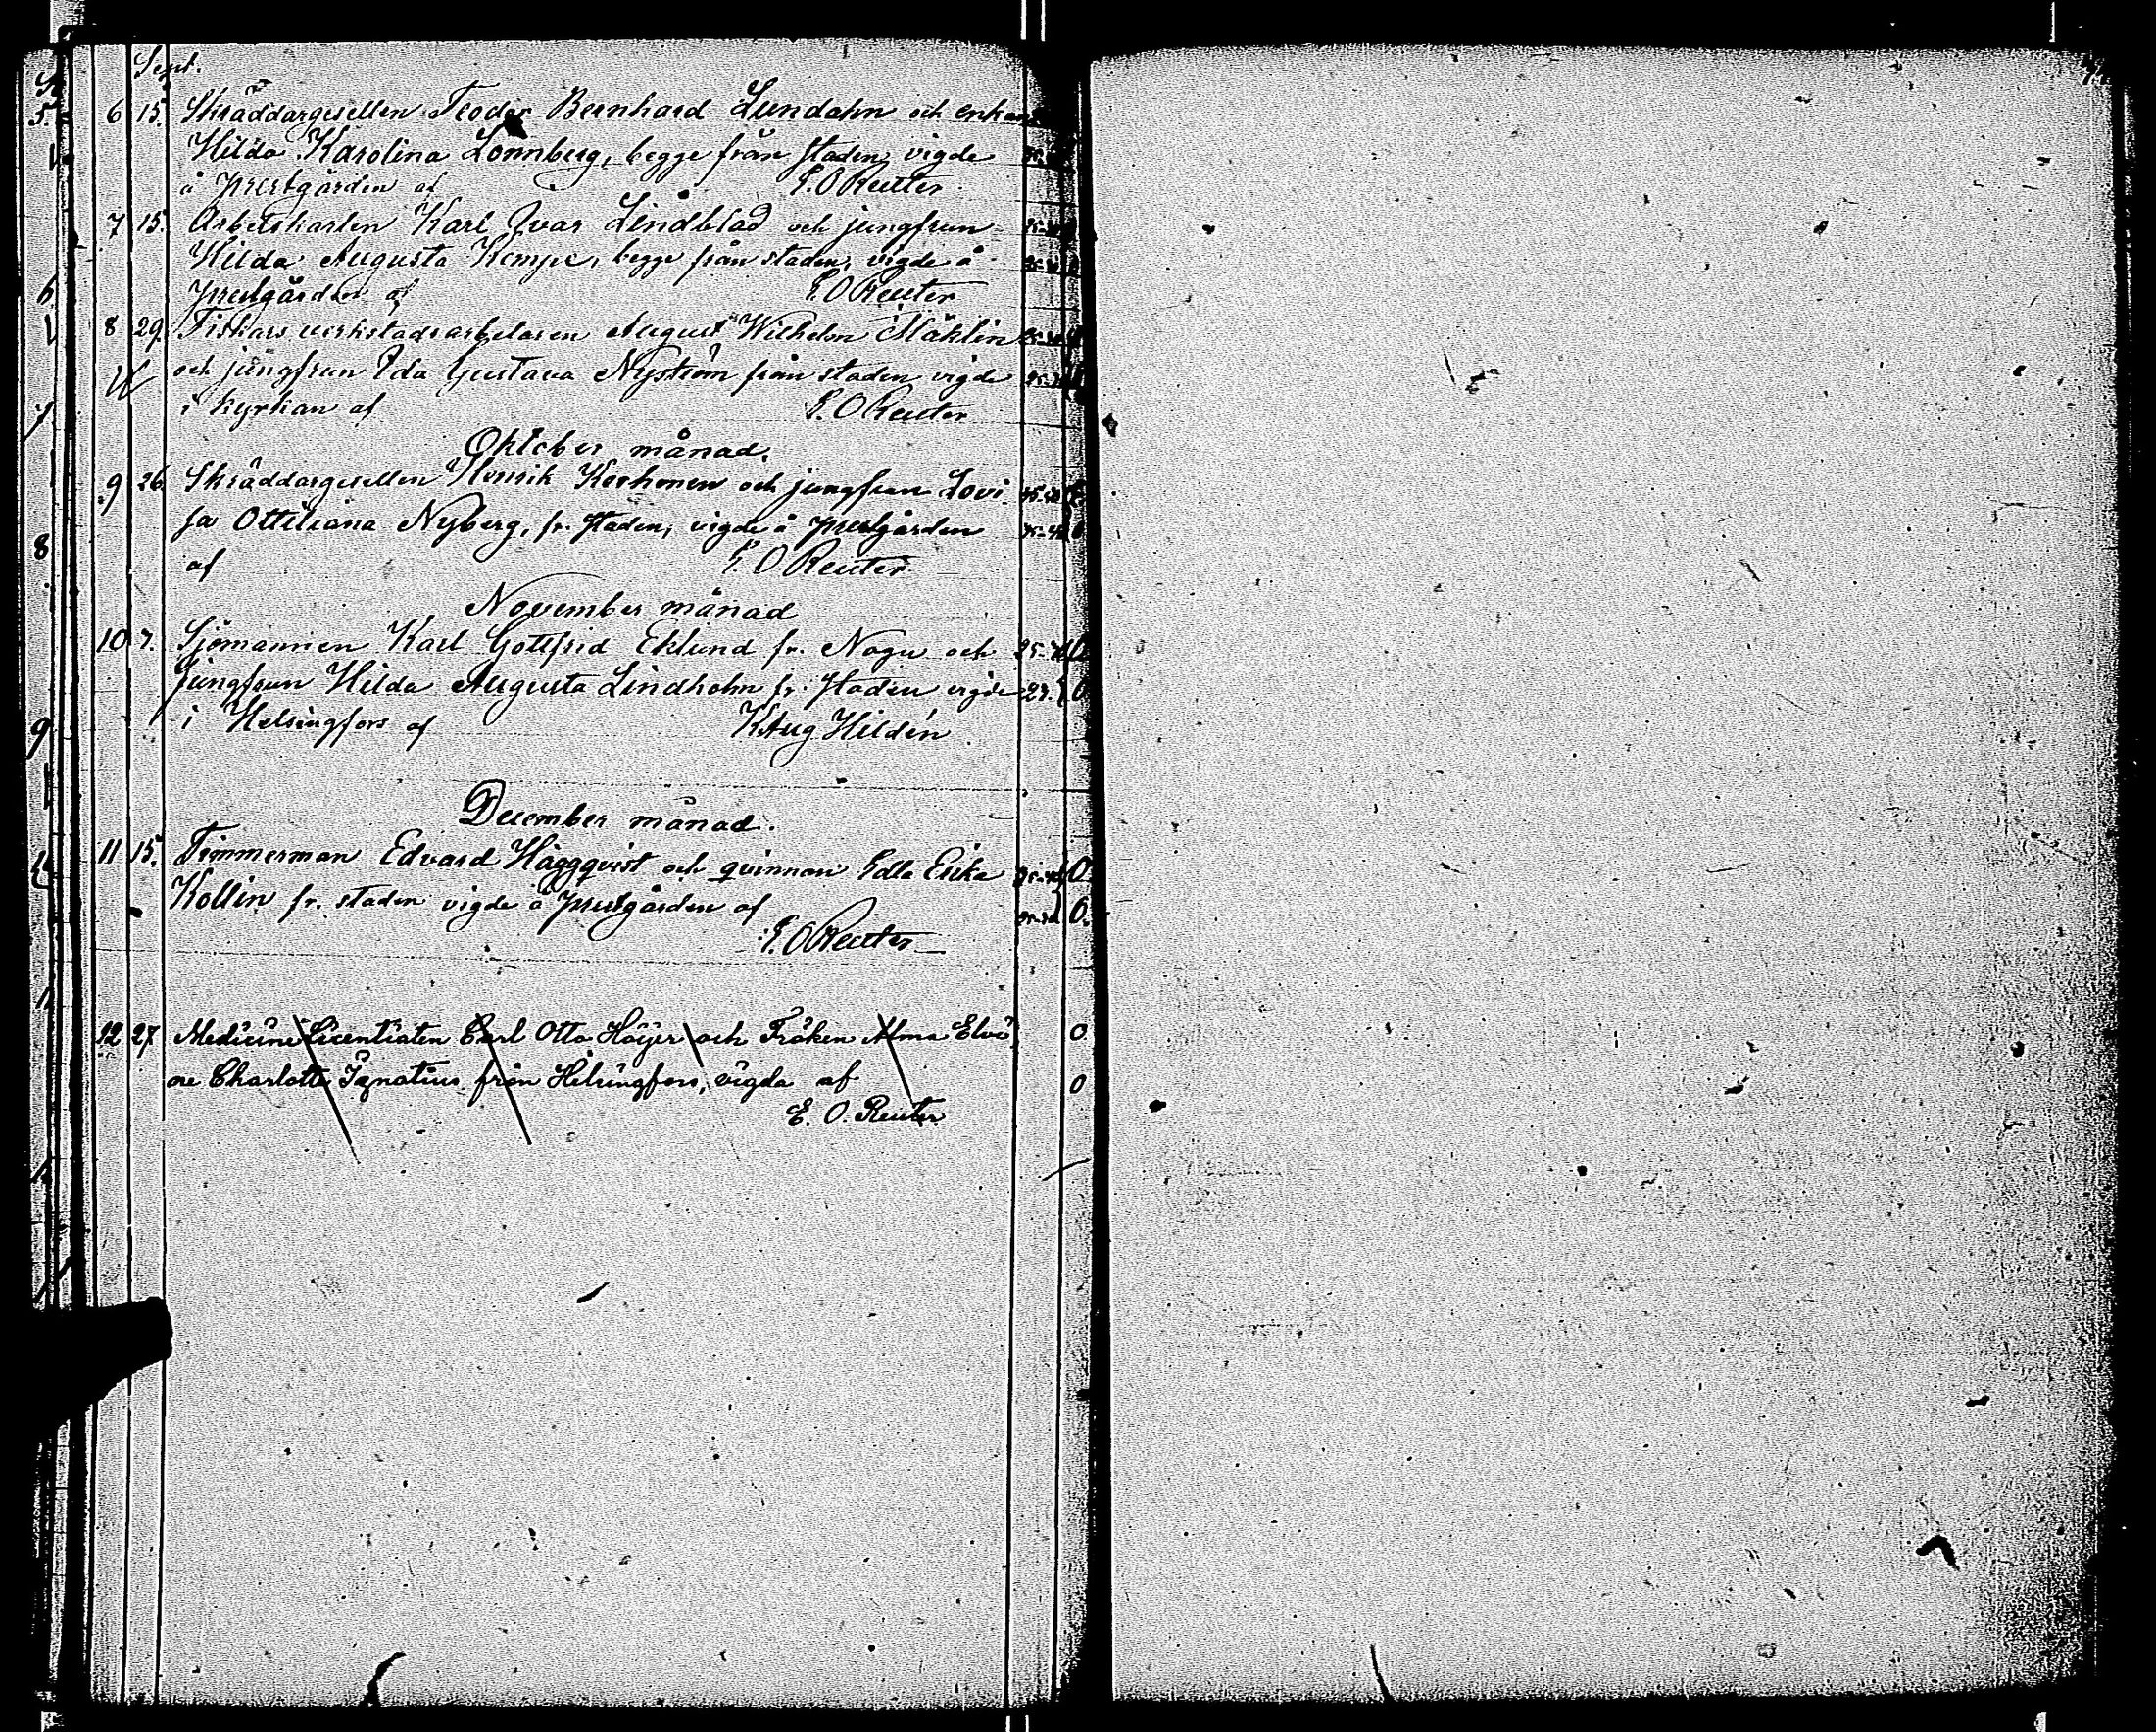 Sept.
6 15. Skräddargesellen Teodor Bernhard Lundahn och enkan
Hilda Karolina Lönnberg, begge från staden, vigde
å prestgården af E. O Reuter.
7 15. Arbetskarlen Karl Ivar Lindblad och jungfrun
Hilda Augusta Kempe, begge från staden, vigde å
prestgården af E. O Reuter
8 29. Fiskars verkstadsarbetaren August Wilhelm Mäklin
och jungfrun Ida Gustava Nyström från staden vigde
i kyrkan af E. O Reuter
Oktober månad.
9 26. Skräddargesellen Henrik Korhonen och jungfrun Lovi
sa Ottiliana Nyberg, fr. staden, vigde å prestgården
af E. O Reuter.
November månad
10 7. Sjömannen Karl Gottfrid Eklund fr. Nagu och 0
jungfrun Hilda Augusta Lindholm fr. staden vigde 0
i Helsingfors af K Aug Hildén
December månad.
11 15. Timmerman Edvard Häggqvist och qvinnan Edla Erika 0
Kollin fr. staden vigde å prestgården af 0.
E. O Reuter
12 27 Medicine Licentiaten Carl Otto Höijer och Fröken Alma Elvi 0
ne Charlotte Ignatius från Helsingfors, vigda af 0
E. O. Reuter